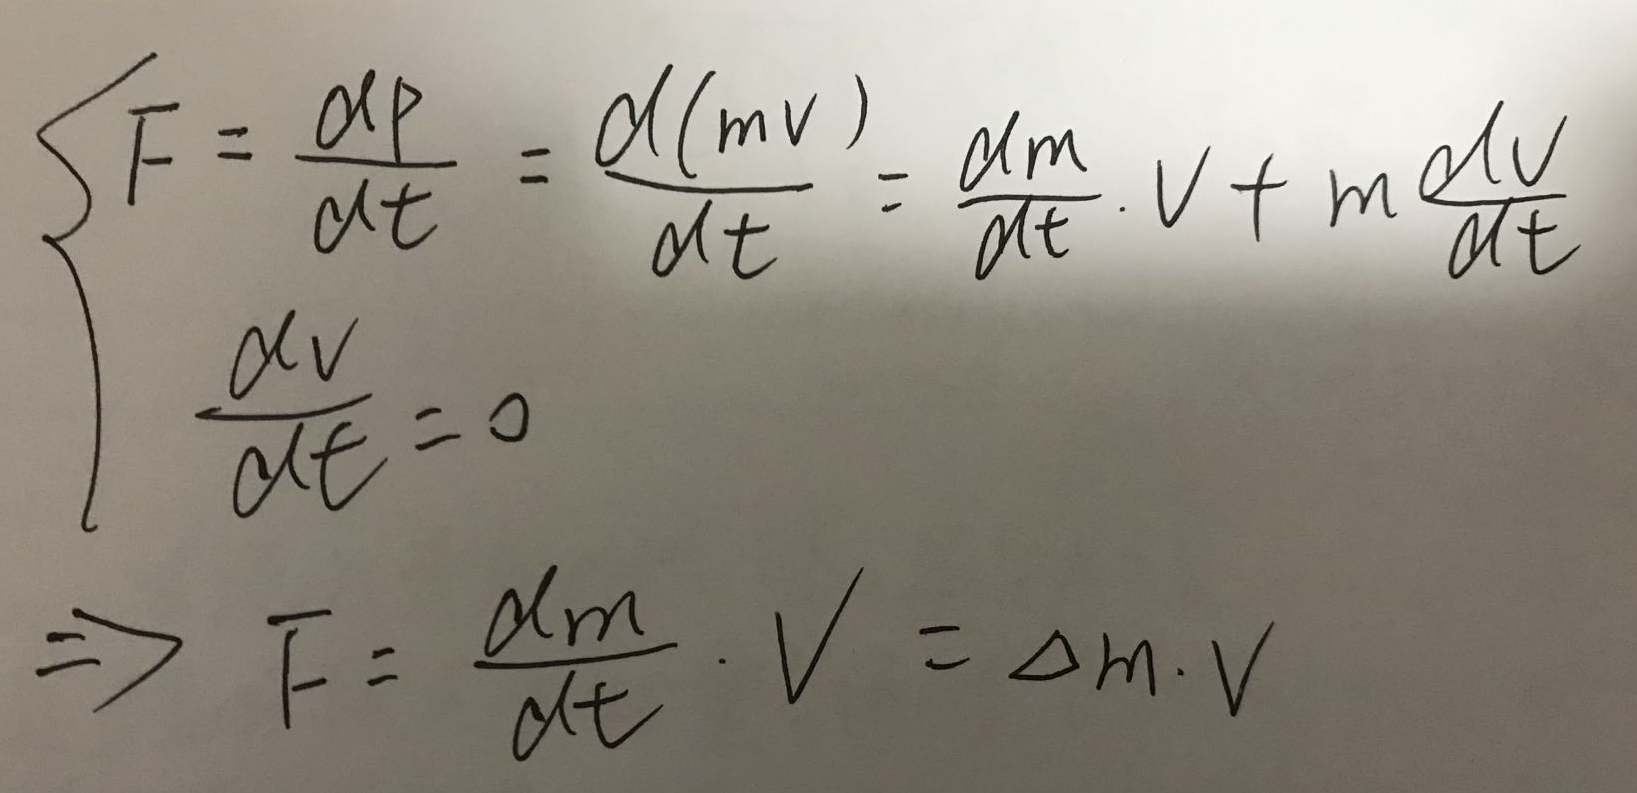 F = dp/dt = d(mv)/dt = dm/dt · V + m dv/dt
dv/dt = 0
=> F = dm/dt · V = Δm · V